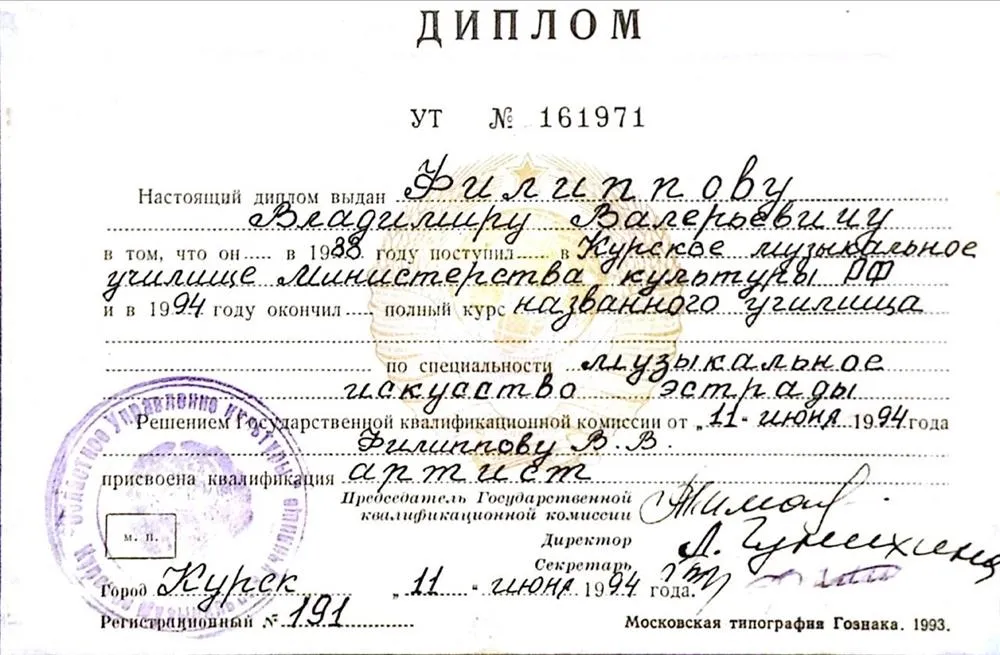 ДИПЛОМ
УТ № 161971
Настоящий диплом выдан Филиппову
Владимиру Валерьевичу
в том, что он в 1988 году поступил в Курское музыкальное
училище Министерства культуры РФ
и в 1994 году окончил полный курс названного училища
по специальности музыкальное
искусство эстрады
Решением Государственной квалификационной комиссии от „11" июня 1994 года
Филиппову В. В.
присвоена квалификация артист
Председатель Государственной
квалификационной комиссии
Директор
Секретарь
м. п.
Город Курск „11" июня 1994 года.
Регистрационный № 191
Московская типография Гознака. 1993.